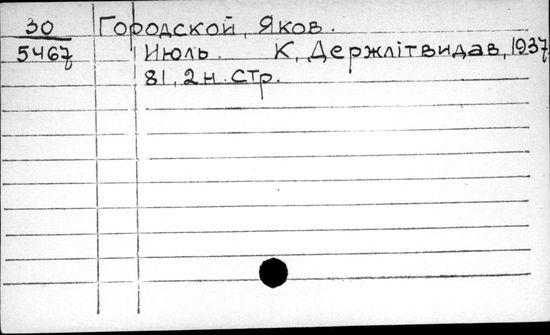 30 Городской, Яков.
5467 Июль. К, Держлітвидав, 1937
81, 2 н. стр.